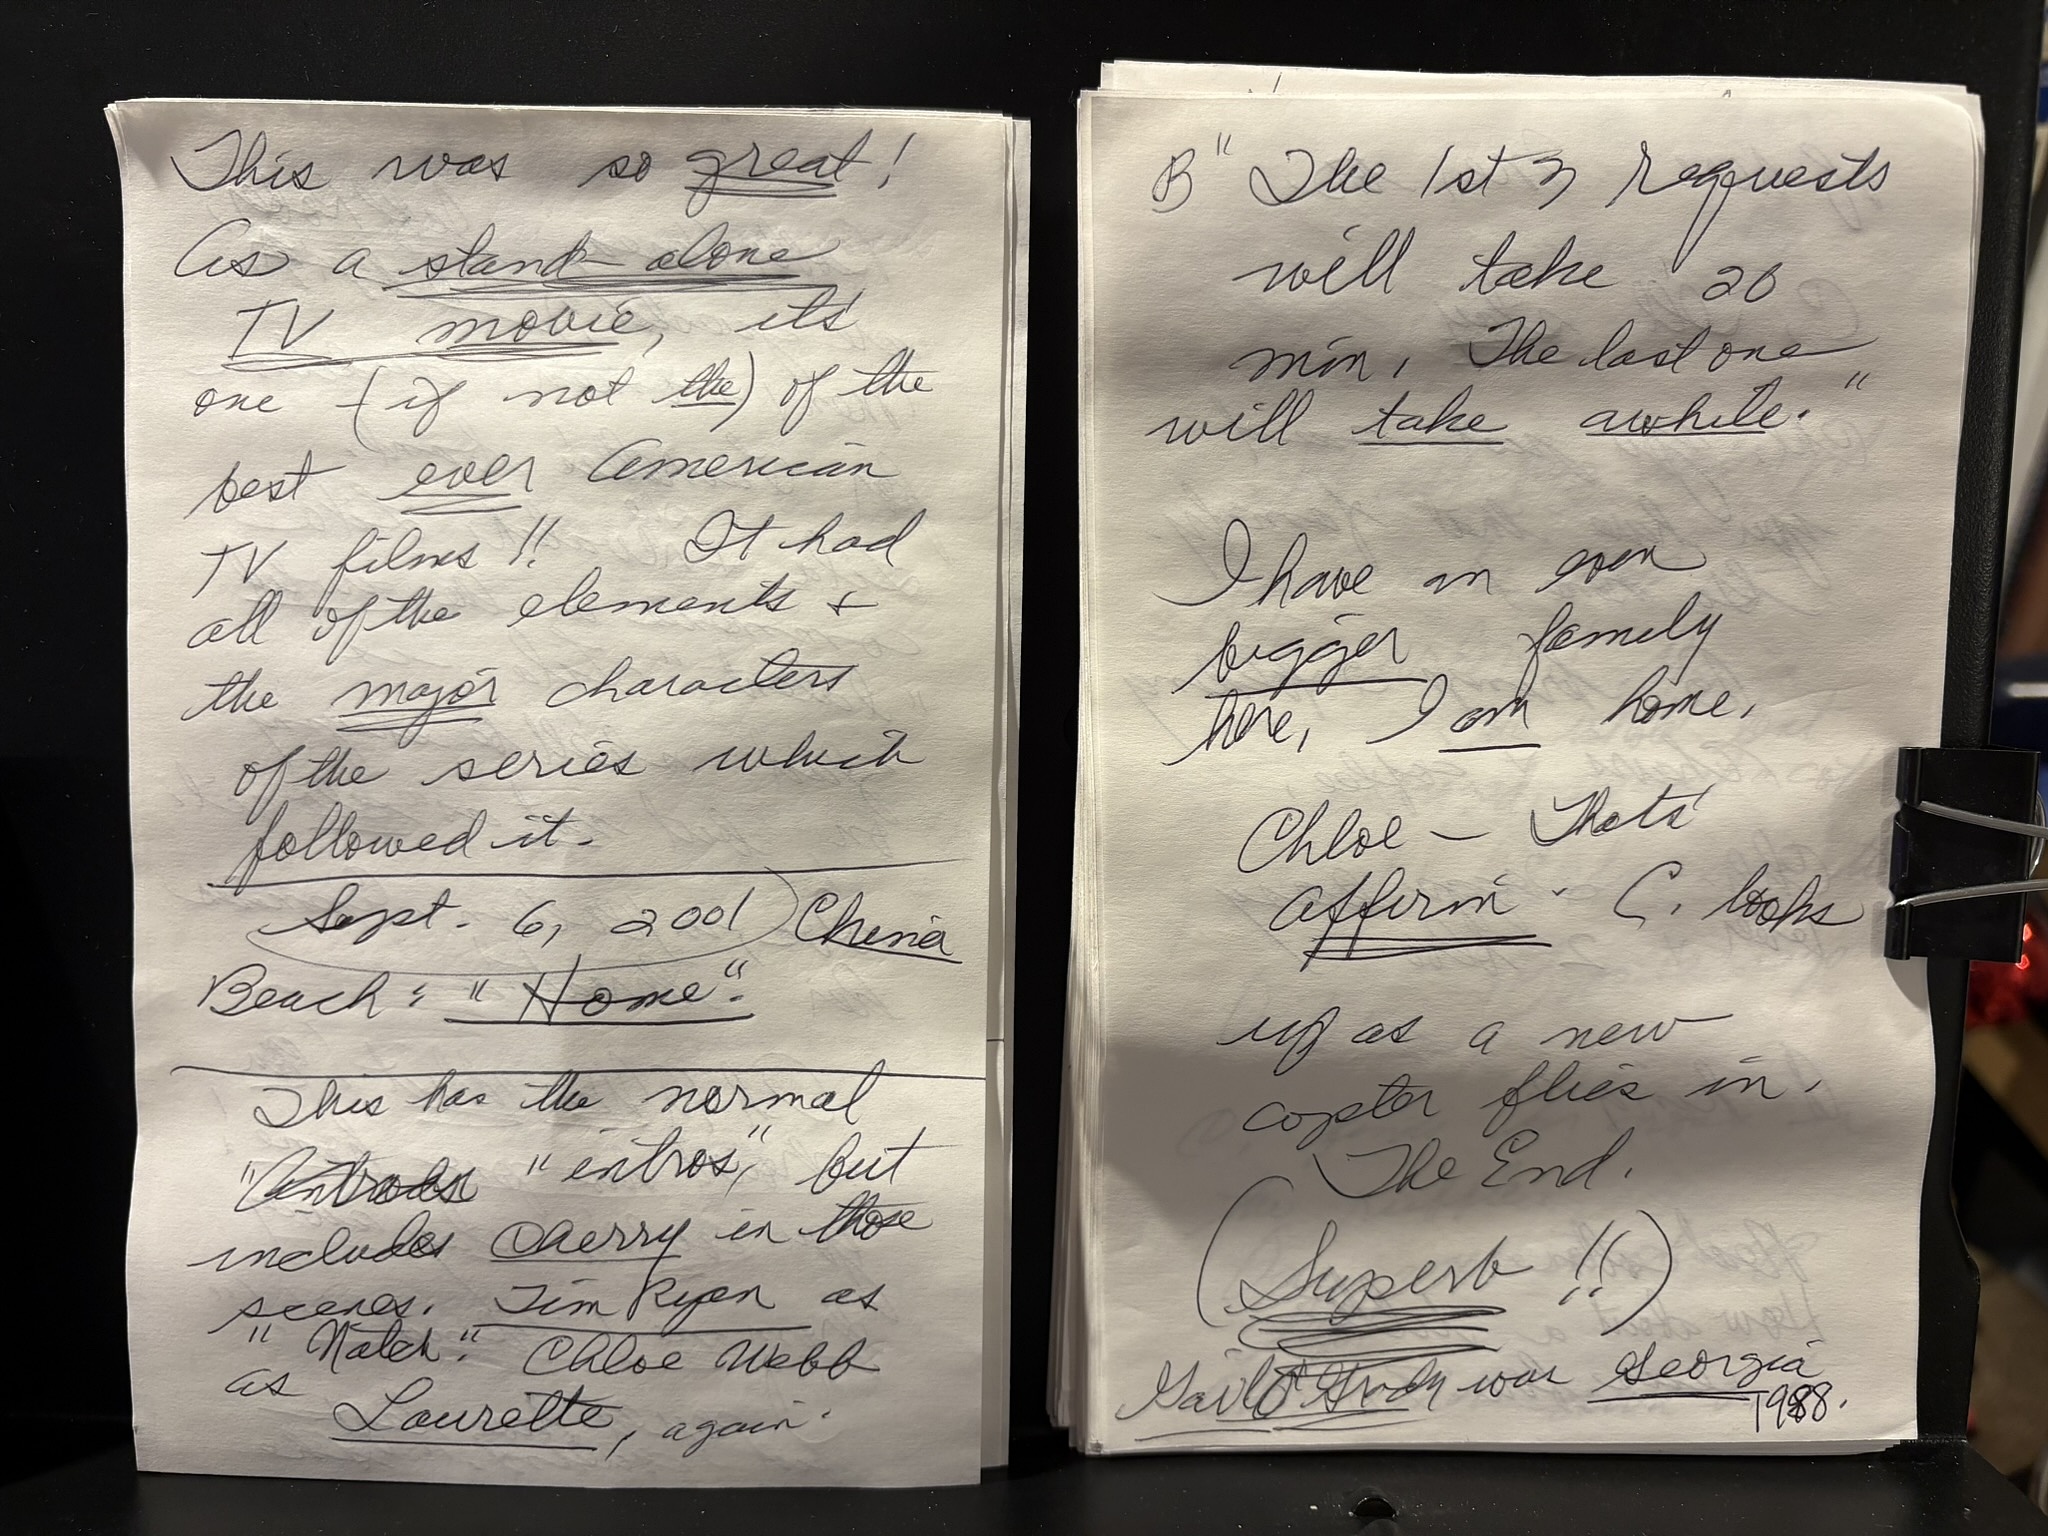 This was so great!
As a stand-alone
TV movie, it's
one (if not the) of the
best ever American
TV films!! It had
all of the elements +
the major characters
of the series which
followed it.
Sept. 6, 2001 China
Beach: "Home".
This has the normal
"intros", but
includes Cherry in those
scenes. Tim Ryan as
"Natch". Chloe Webb
as
Laurette, again.
B "The 1st 3 requests
will take 20
min. The last one
will take awhile."
I have an even
bigger family
here, I am home.
Chloe - That's
affirm - C. looks
up as a new
copter flies in.
The End.
(Superb!!)
Gail O'Grady was Georgia
1988.